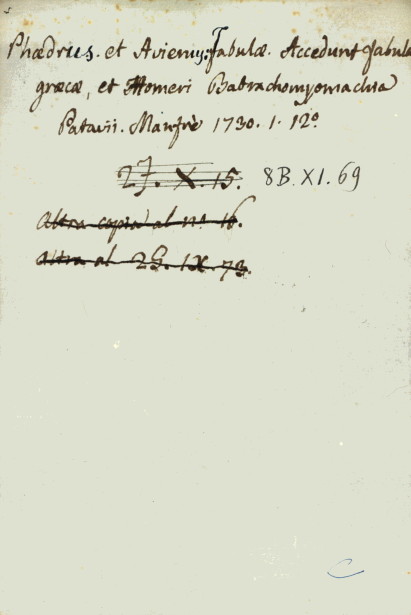 Phædrus. et Avienus: Fabulæ. Accedunt Fabulæ
græcæ, et Homeri Batrachomyomachia
Patavii. Manfrè 1730. 1. 12º
27. X. 15. 8B. XI. 69
Altra copia al nº 16.
Altra al 25. IX. 73.